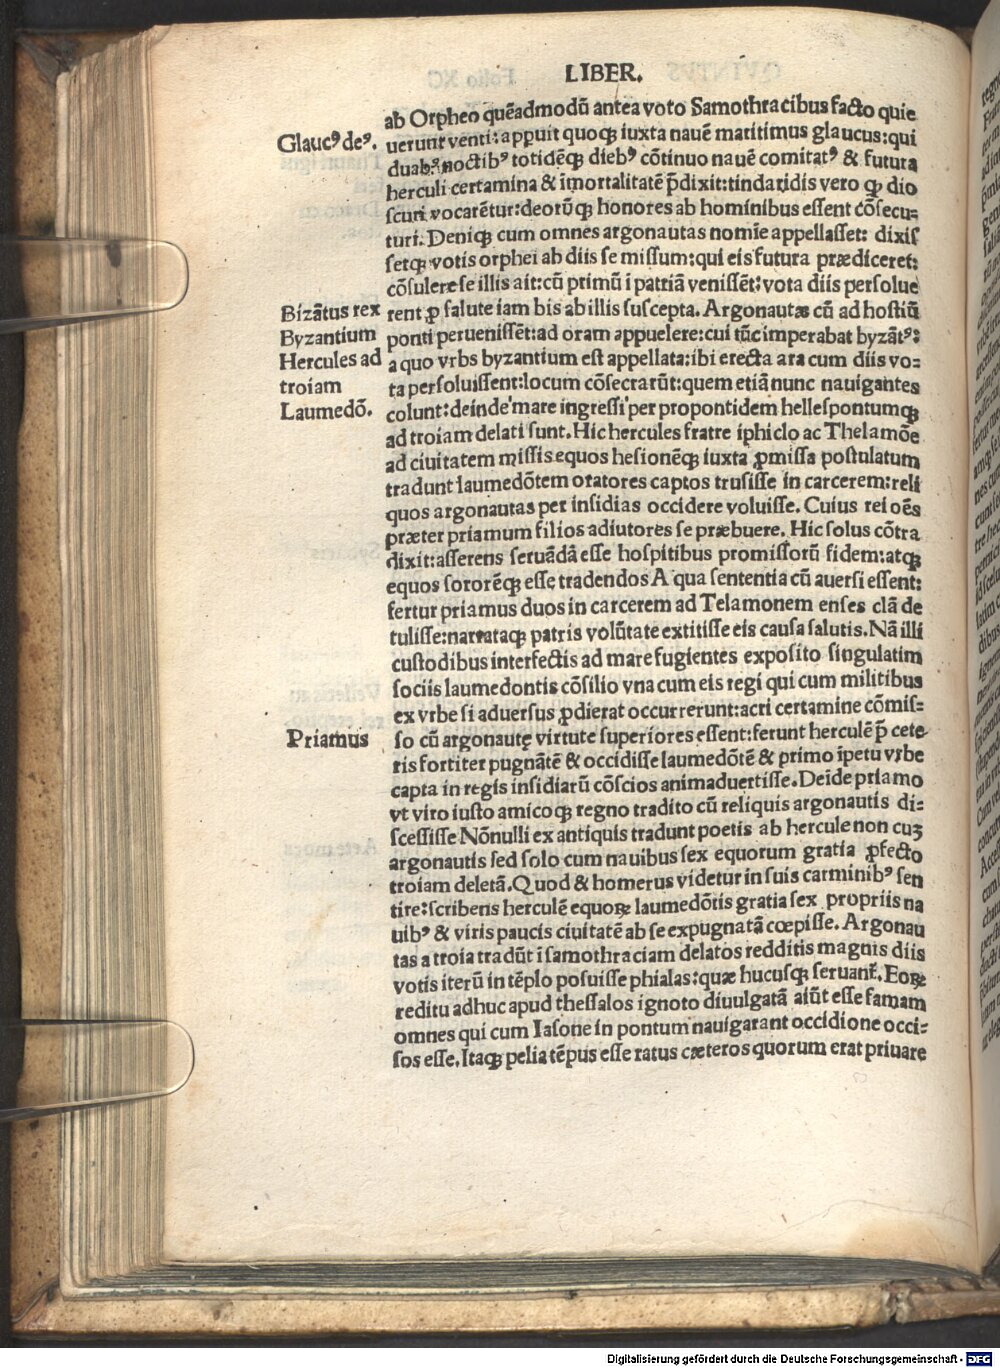 LIBER.
ab Orpheo quēadmodū antea voto Samothracibus facto quie
Glaucꝰ deꝰ.
uerunt venti: appuit quoqꝫ iuxta nauē maritimus glaucus: qui
duabꝰ noctibꝰ totidēqꝫ diebꝰ cōtinuo nauē comitatꝰ & futura
herculi certamina & īmortalitatē p̄dixit: tindaridis vero qꝫ dio
scuri vocarētur: deorūqꝫ honores ab hominibus essent cōsecu-
turi. Deniqꝫ cum omnes argonautas nomīe appellasset: dixis
setqꝫ votis orphei ab diis se missum: qui eis futura prædiceret:
cōsulere se illis ait: cū primū i patriā venissēt: vota diis persolue
Bizātus rex
Byzantium
Hercules ad
troiam
Laumedō.
rent ꝓ salute iam bis ab illis suscepta. Argonautas cū ad hostiū
ponti peruenissēt: ad oram appuelere: cui tūc imperabat byzātꝰ:
a quo vrbs byzantium est appellata: ibi erecta ara cum diis vo-
ta persoluissent: locum cōsecrarūt: quem etiā nunc nauigantes
colunt: deinde mare ingressi per propontidem hellespontumqꝫ
ad troiam delati sunt. Hic hercules fratre iphiclo ac Thelamōe
ad ciuitatem missis equos hesionēqꝫ iuxta ꝓmissa postulatum
tradunt laumedōtem oratores captos trusisse in carcerem: reli
quos argonautas per insidias occidere voluisse. Cuius rei oēs
præter priamum filios adiutores se præbuere. Hic solus cōtra
dixit: asserens seruādā esse hospitibus promissorū fidem: atqꝫ
equos sororēqꝫ esse tradendos A qua sententia cū auersi essent:
fertur priamus duos in carcerem ad Telamonem enses clā de
tulisse: narrataqꝫ patris volūtate extitisse eis causa salutis. Nā illi
custodibus interfectis ad mare fugientes exposito singulatim
sociis laumedontis cōsilio vna cum eis regi qui cum militibus
ex vrbe si aduersus ꝓdierat occurrerunt: acri certamine cōmis-
Priamus
so cū argonautę virtute superiores essent: ferunt herculē p̄ cete-
ris fortiter pugnātē & occidisse laumedōtē & primo īpetu vrbe
capta in regis insidiarū cōscios animaduertisse. Deīde priamo
vt viro iusto amicoqꝫ regno tradito cū reliquis argonautis di-
scessisse Nōnulli ex antiquis tradunt poetis ab hercule non cuꝫ
argonautis sed solo cum nauibus sex equorum gratia ꝓfecto
troiam deletā. Quod & homerus videtur in suis carminibꝰ sen
tire: scribens herculē equoꝝ laumedōtis gratia sex propriis na
uibꝰ & viris paucis ciuitatē ab se expugnatā cœpisse. Argonau
tas a troia tradūt i samothraciam delatos redditis magnis diis
votis iterū in tēplo posuisse phialas: quæ hucusqꝫ seruant̄. Eoꝝ
reditu adhuc apud thessalos ignoto diuulgatā aiūt esse famam
omnes qui cum Iasone in pontum nauigarant occidione occi-
sos esse. Itaqꝫ pelia tēpus esse ratus cæteros quorum erat priuare
Digitalisierung gefördert durch die Deutsche Forschungsgemeinschaft - DFG